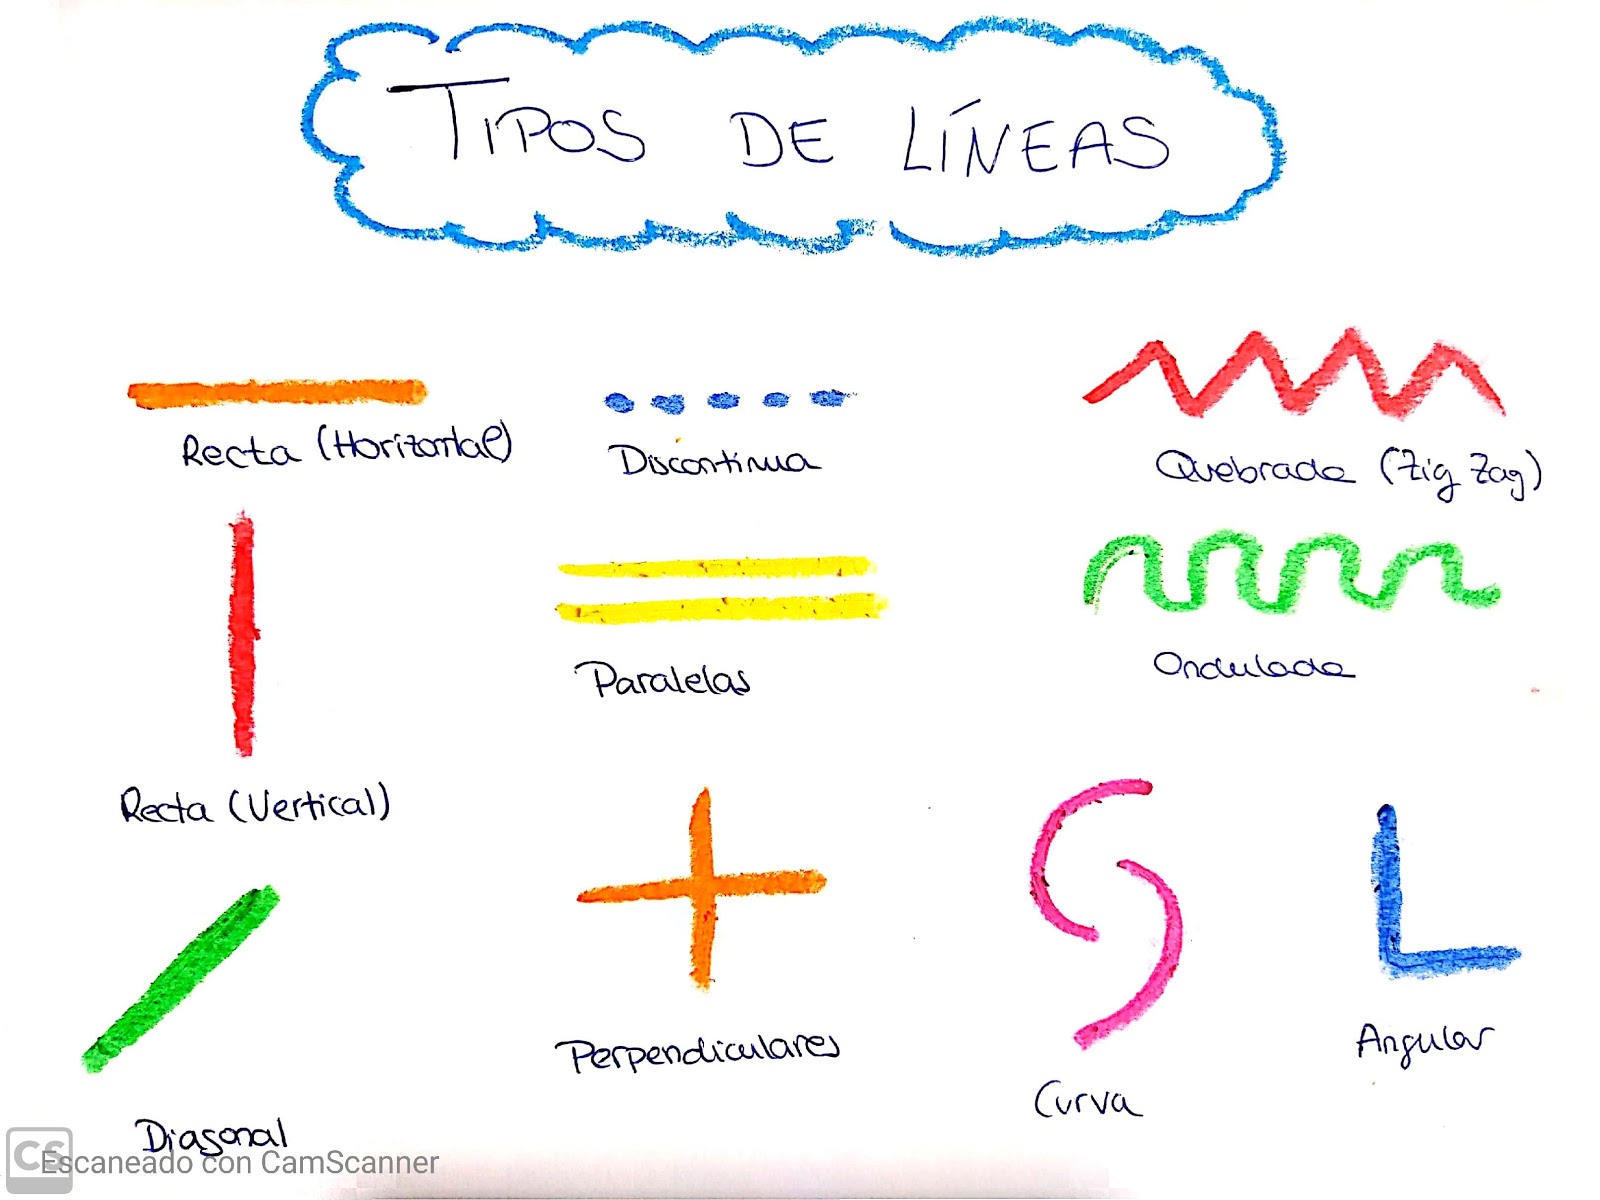 TIPOS DE LÍNEAS
Recta (Horizontal)
Discontinua
Quebrada (Zig Zag)
Paralelas
Ondulada
Recta (Vertical)
Perpendiculares
Curva
Angular
Diagonal
CS
Escaneado con CamScanner